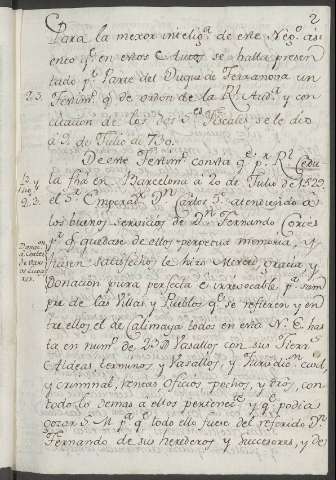 2
Para la mexor intelig.ª de este Neg.º asi
ento q.ᵉ en estos Autos se halla presen
23. tado p.ʳ Parte del Duque de Terranova un
Testim.º q. de orden de la R.ˡ Aud.ª y con
citacion de los S.ᵉˢ Fiscales se le dio
à 9. de Julio de 730.
De este Testim.º consta q.ᵉ p.ʳ R.ˡ Cedu
la fha en Barcelona à 20 de Julio de 1529.
el S.ʳ Emperad.ʳ D.ⁿ Carlos 5.º atendiendo à
los buenos servicios de D.ⁿ Fernando Cortes
Donac.ⁿ à Cortes de varios Lugares.
p.ª q.ᵉ quedase de ellos perpetua memoria, y
fuesen satisfechos le hizo Merced, gracia y
Donación pura perfecta è irrevocable p.ª siem
pre de las Villas y Pueblos q.ᵉ se refieren y en
tre ellos el de Calimaya todos en esta N. E. has
ta en num.º de 23 D Vasallos con sus Tierr.ˢ
Aldeas, terminos y Vasallos, y Jurisdic.ⁿ civil,
y criminal, rentas oficios, pechos, y dros, con
todo lo demas à ellos pertenec.ᵗᵉ y q.ᵉ podia
gozar S. M. p.ª q.ᵉ todo ello fuese del referido D.ⁿ
Fernando de sus herederos y succesores, y de